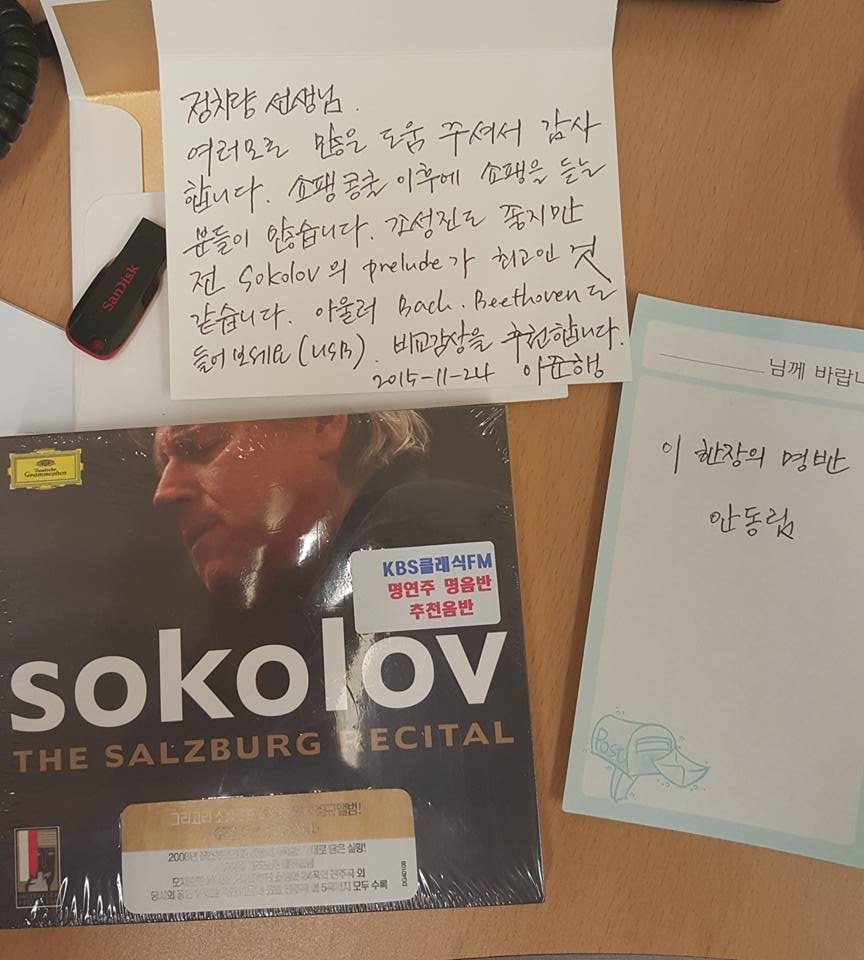 정치량 선생님.
여러모로 많은 도움 주셔서 감사
합니다. 쇼팽콩쿨 이후에 쇼팽을 듣는
분들이 많습니다. 조성진도 좋지만
전 Sokolov의 prelude가 최고인 것
같습니다. 아울러 Bach. Beethoven도
들어보세요(USB). 비교감상을 추천합니다.
2015-11-24
SanDisk
님께 바랍니
이 한장의 명반
안동림
Post
Deutsche
Grammophon
KBS클래식FM
명연주 명음반
추천음반
sokolov
THE SALZBURG RECITAL
그리고리
2008년
모두 수록